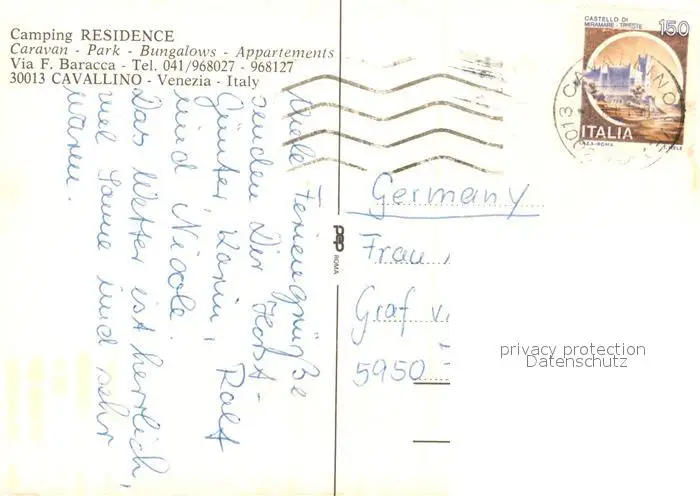 Camping RESIDENCE
Caravan - Park - Bungalows - Appartements
Via F. Baracca - Tel. 041/968027 - 968127
30013 CAVALLINO - Venezia - Italy
Viele Feriengrüße
senden Dir Horst-
Günter, Karin, Ralf
und Nicole.
Das Wetter ist herrlich,
viel Sonne und sehr
warm.
pep
ROMA
CASTELLO DI
MIRAMARE - TRIESTE
150
ITALIA
I.P.Z.S. - ROMA
013 CAVALLINO
Germany
Frau
Graf v.
5950
privacy protection
Datenschutz